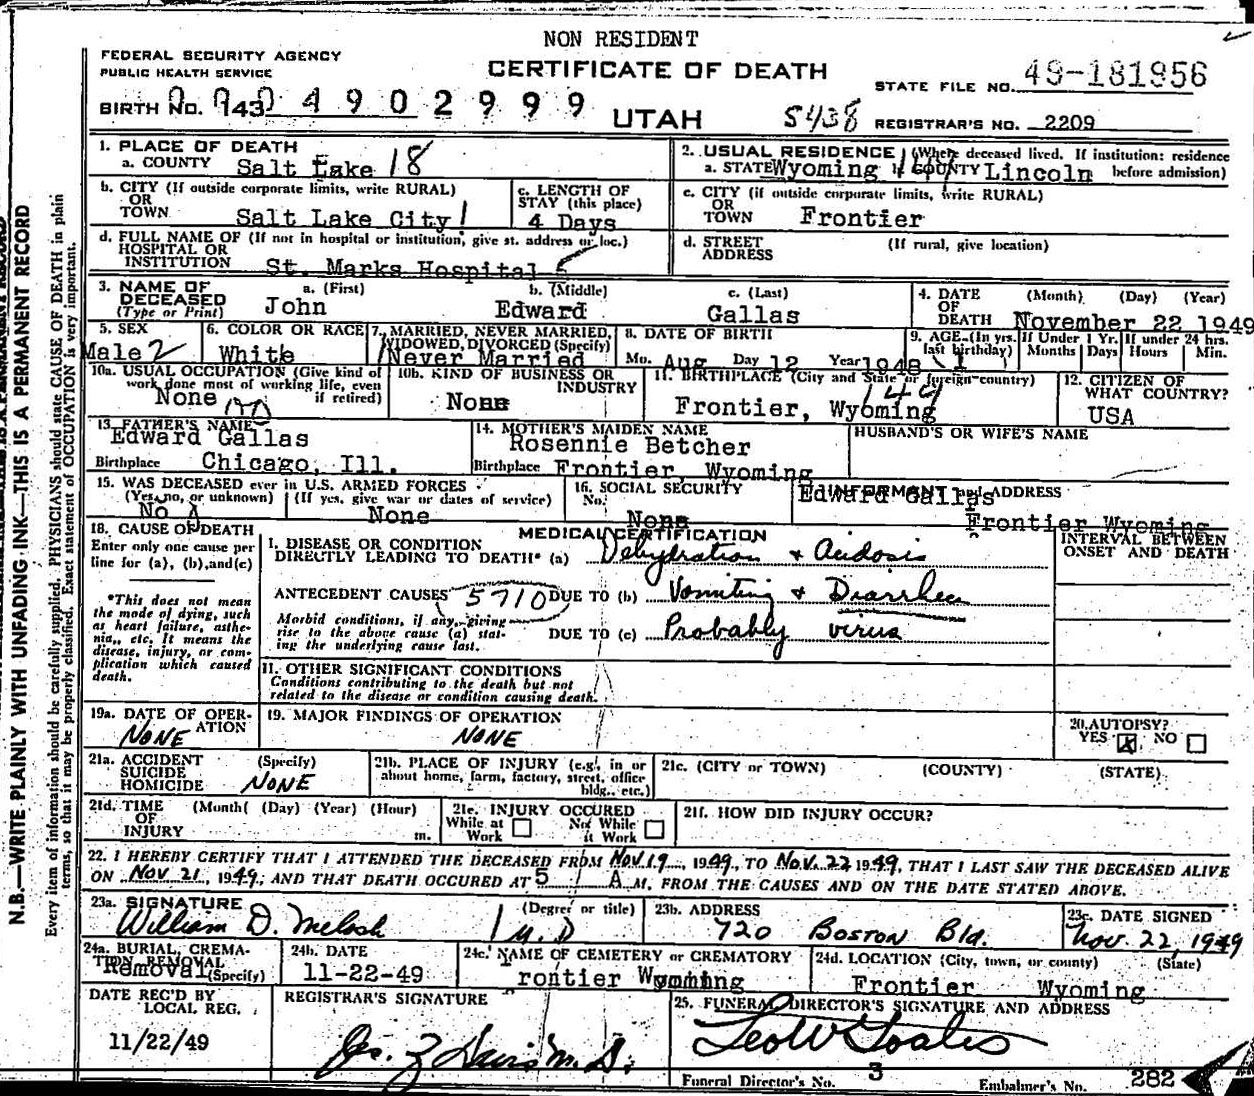 NON RESIDENT
FEDERAL SECURITY AGENCY
PUBLIC HEALTH SERVICE
CERTIFICATE OF DEATH
STATE FILE NO. 49-181956
BIRTH NO. 143 04902999
UTAH
5438
REGISTRAR'S NO. 2209
1. PLACE OF DEATH
a. COUNTY Salt Lake 18
2. USUAL RESIDENCE (Where deceased lived. If institution: residence before admission)
a. STATE Wyoming COUNTY Lincoln
b. CITY (If outside corporate limits, write RURAL)
OR
TOWN Salt Lake City
c. LENGTH OF STAY (this place)
4 Days
c. CITY (if outside corporate limits, write RURAL)
OR
TOWN Frontier
d. FULL NAME OF (If not in hospital or institution, give st. address or loc.)
HOSPITAL OR
INSTITUTION St. Marks Hospital
d. STREET ADDRESS (If rural, give location)
3. NAME OF DECEASED (Type or Print)
a. (First) b. (Middle) c. (Last)
John Edward Gallas
4. DATE OF DEATH (Month) (Day) (Year)
November 22 1949
5. SEX
Male 2
6. COLOR OR RACE
White
7. MARRIED, NEVER MARRIED, WIDOWED, DIVORCED (Specify)
Never Married
8. DATE OF BIRTH
Mo. Aug Day 12 Year 1948
9. AGE (In yrs. last birthday) 1
If Under 1 Yr. Months Days
If under 24 hrs. Hours Min.
10a. USUAL OCCUPATION (Give kind of work done most of working life, even if retired)
None
10b. KIND OF BUSINESS OR INDUSTRY
None
11. BIRTHPLACE (City and State or foreign country)
149
Frontier, Wyoming
12. CITIZEN OF WHAT COUNTRY?
USA
13. FATHER'S NAME
Edward Gallas
Birthplace Chicago, Ill.
14. MOTHER'S MAIDEN NAME
Rosennie Betcher
Birthplace Frontier, Wyoming
HUSBAND'S OR WIFE'S NAME
15. WAS DECEASED ever in U.S. ARMED FORCES
(Yes, no, or unknown) (If yes, give war or dates of service)
No None
16. SOCIAL SECURITY No.
None
INFORMANT and ADDRESS
Edward Gallas
Frontier Wyoming
18. CAUSE OF DEATH
Enter only one cause per line for (a), (b), and (c)
*This does not mean the mode of dying, such as heart failure, asthenia, etc. It means the disease, injury, or complication which caused death.
MEDICAL CERTIFICATION
INTERVAL BETWEEN ONSET AND DEATH
I. DISEASE OR CONDITION
DIRECTLY LEADING TO DEATH* (a) Dehydration & Acidosis
ANTECEDENT CAUSES 5710 DUE TO (b) Vomiting & Diarrhea
Morbid conditions, if any, giving rise to the above cause (a) stating the underlying cause last.
DUE TO (c) Probably virus
11. OTHER SIGNIFICANT CONDITIONS
Conditions contributing to the death but not related to the disease or condition causing death.
19a. DATE OF OPERATION
NONE
19. MAJOR FINDINGS OF OPERATION
NONE
20. AUTOPSY?
YES X NO
21a. ACCIDENT SUICIDE HOMICIDE (Specify)
NONE
21b. PLACE OF INJURY (e.g., in or about home, farm, factory, street, office bldg., etc.)
21c. (CITY or TOWN) (COUNTY) (STATE)
21d. TIME OF INJURY (Month) (Day) (Year) (Hour) m.
21e. INJURY OCCURED
While at Work Not While it Work
21f. HOW DID INJURY OCCUR?
22. I HEREBY CERTIFY THAT I ATTENDED THE DECEASED FROM Nov. 19, 1949, TO Nov. 22 1949, THAT I LAST SAW THE DECEASED ALIVE
ON Nov 21, 1949; AND THAT DEATH OCCURED AT 5 A M, FROM THE CAUSES AND ON THE DATE STATED ABOVE.
23a. SIGNATURE (Degree or title)
William D. McIosh M.D
23b. ADDRESS
720 Boston Bld.
23c. DATE SIGNED
Nov. 22, 1949
24a. BURIAL, CREMATION, REMOVAL (Specify)
Removal
24b. DATE
11-22-49
24c. NAME OF CEMETERY or CREMATORY
rontier Wyoming
24d. LOCATION (City, town, or county) (State)
Frontier Wyoming
DATE REC'D BY LOCAL REG.
11/22/49
REGISTRAR'S SIGNATURE
25. FUNERAL DIRECTOR'S SIGNATURE AND ADDRESS
Leo W Goates
Funeral Director's No. 3
Embalmer's No. 282
N.B.—WRITE PLAINLY WITH UNFADING INK—THIS IS A PERMANENT RECORD
Every item of information should be carefully supplied. PHYSICIANS should state CAUSE OF DEATH in plain terms, so that it may be properly classified. Exact statement of OCCUPATION is very important.